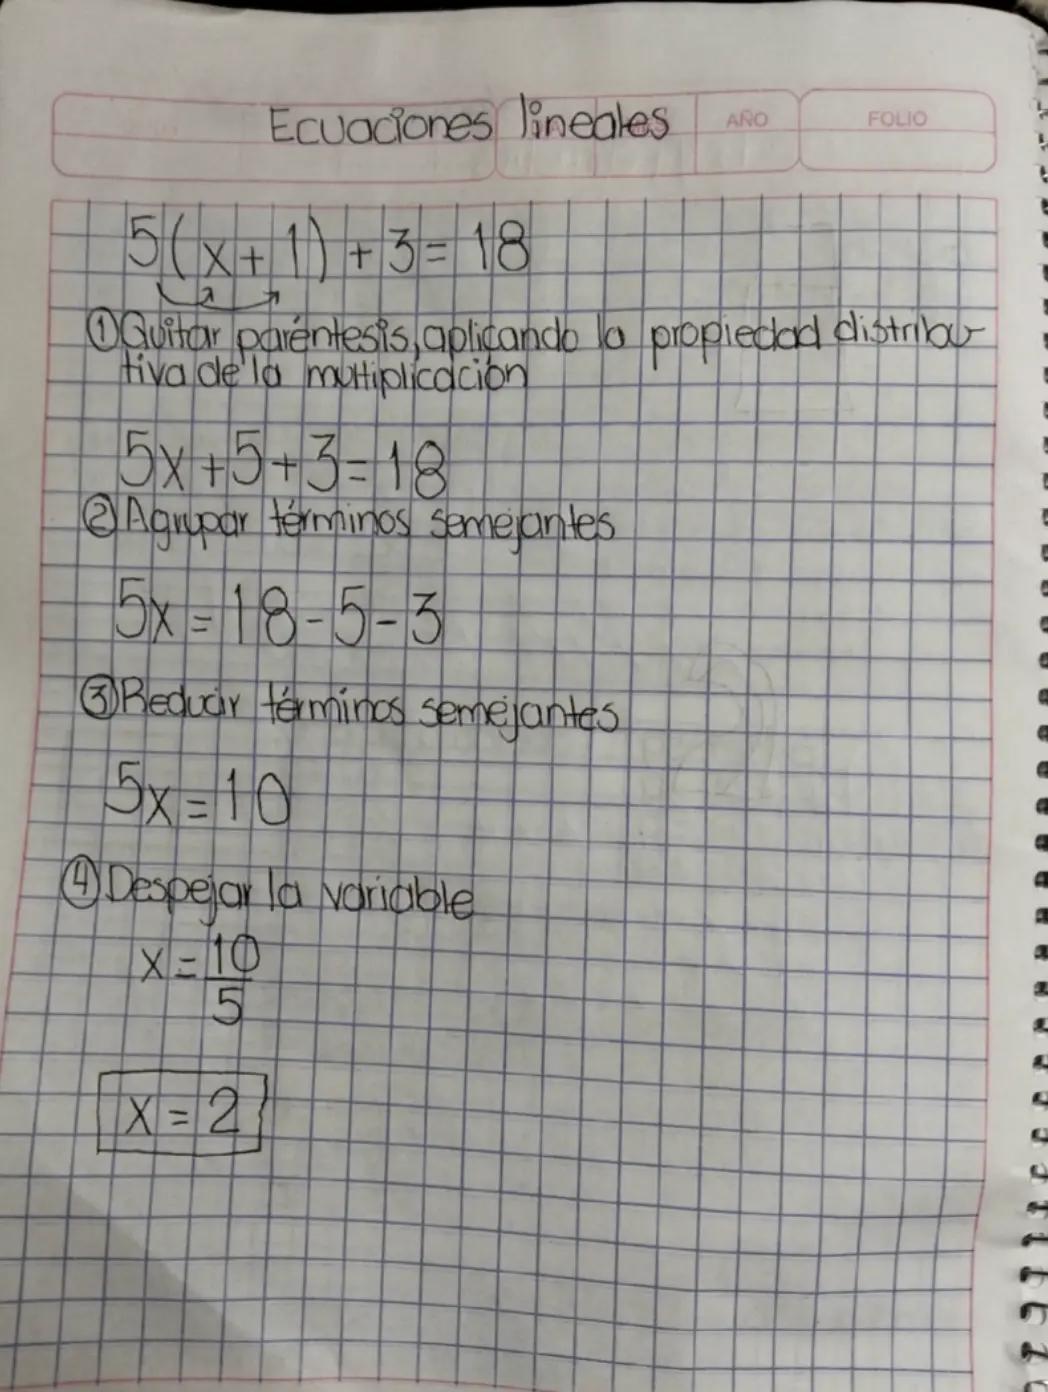 Ecuaciones lineales
AÑO
FOLIO
5(x+1)+3=18
① Quitar paréntesis, aplicando la propiedad distribu-
tiva de la multiplicación
5x+5+3=18
② Agrupar términos semejantes
5x=18-5-3
③ Reducir términos semejantes
5x=10
④ Despejar la variable
x=10
5
x=2